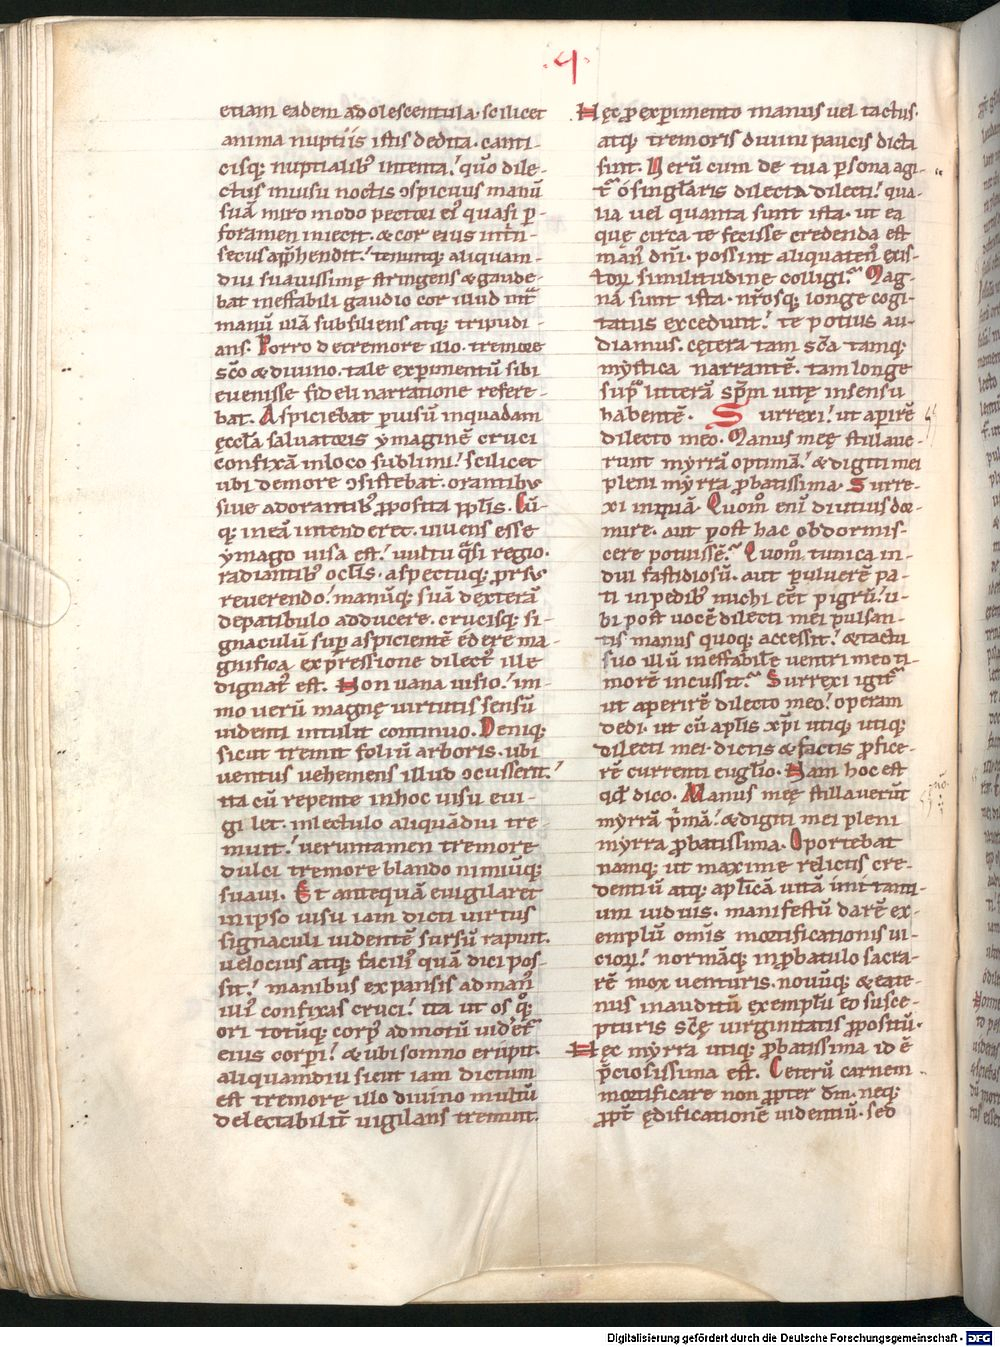 .4.
etiam eadem adolescentula. scilicet
anima nuptiis istis dedita. canti-
cisq; nuptialib; intenta. quo dile-
ctus in uisu noctis ɔspicuus manū
suā miro modo pectori ei' quasi ꝑ
foramen iniecit. & cor eius intrin-
secus app̄hendit. tenuitq; aliquam-
diu suauissime stringens & gaude-
bat ineffabili gaudio cor illud intͣ
manū illā subsiliens atq; tripudi-
ans. Porro de tremore illo. tremore
sc̄o & diuino. tale exꝑimentū sibi
euenisse fideli narratione refere-
bat. Aspiciebat ꝑ uisū in quadam
ęccl̄a saluatoris ymaginē cruci
confixā in loco sublimi. scilicet
ubi de more ɔsistebat. orantibus
siue adorantib; ꝓposita ppl̄is. Cū-
q; in eā intenderet. uiuens esse
ymago uisa est. uultu q̄si regio.
radiantib; oclīs. aspectuq; ꝓrsus
reuerendo. manūq; suā dexterā
de patibulo adducere. crucisq; si-
gnaculū suꝑ aspicientē edere ma-
gnifica expressione dilect' ille
dignat' est. Non uana uisio. im-
mo uerū magnę uirtutis sensū
uidenti intulit continuo. Deniq;
sicut tremit foliū arboris. ubi
uentus uehemens illud ɔcusserit.
ita cū repente in hoc uisu eui-
gilet. in lectulo aliquādiu tre-
muit. ueruntamen tremore
dulci tremore blando nimiūq;
suaui. Et antequā euigilaret
in ipso uisu iam dicti uirtus
signaculi uidentē sursū rapuit.
uelocius atq; facili' quā dici pos-
sit. manibus expansis ad man'
illi' confixas cruci. ita ut os q°q;
ori totūq; corp' ad motū uideret̄
eius corpi. & ubi somno eripit.
aliquamdiu sicut iam dictum
est tremore illo diuino multū
delectabilit̄ uigilans tremuit.
Hęc ꝓ exꝑimento manus uel tactus.
atq; tremoris diuini paucis dicta
sint. Uerū cum de tua ꝑsona agi-
tͣ o singl̄aris dilecta dilecti. qua-
lia uel quanta sunt ista. ut ea
que circa te fecisse credenda est
man' dn̄i. possint aliquaten'
similitudine colligi. Mag-
na sunt ista. nr̄osq; longe cogi-
tatus excedunt. te potius au-
diamus. cętera tam sc̄a tamq;
mystica narrantē. tam longe
supͣ litterā spm̄ uitę in sensu
habentē. Surrexi. ut aꝑirē
dilecto meo. Manus meę stillaue-
runt myrrā optimā. & digiti mei
pleni myrra ꝓbatissima. Surre-
xi inquā. Quom° eni diutius dor-
mire. aut post hac obdormis-
cere potuissē. Quom° tunica in-
dui fastidiosū. aut puluerē pa-
ti in pedib; michi eēt pigrū. u-
bi post uocē dilecti mei pulsan-
tis manus quoq; accessit. & tactu
suo illū ineffabilē uentri meo ti-
morē incussit. Surrexi igitͣ
ut aperirē dilecto meo. operam
dedi. ut cū apl̄is xp̄i utiq; utiq;
dilecti mei. dictis & factis ꝓfice-
rē currenti euglīo. Nam hoc est
qd̄ dico. Manus meę stillauerūt
myrrā p̄mā. & digiti mei pleni
myrra ꝓbatissima. Oportebat
namq; ut maxime relictis cre-
dentiū atq; aplīcā uitā
um uiduis. manifestū darē ex-
emplū omīs mortificationis ui-
ciorꝝ. normāq; in ꝓbatulo sacra-
rē mox uenturis. nouūq; & eate-
nus inauditū exemplū eo susce-
pturis sc̄ę uirginitatis ꝓpositū.
Hęc myrra utiq; ꝓbatissima id ē
p̄ciosissima est. Ceterū carnem
mortificare non ꝓpter dm̄. neq;
ꝓpt̄ ędificationē uidentiū. sed
Digitalisierung gefördert durch die Deutsche Forschungsgemeinschaft - DFG